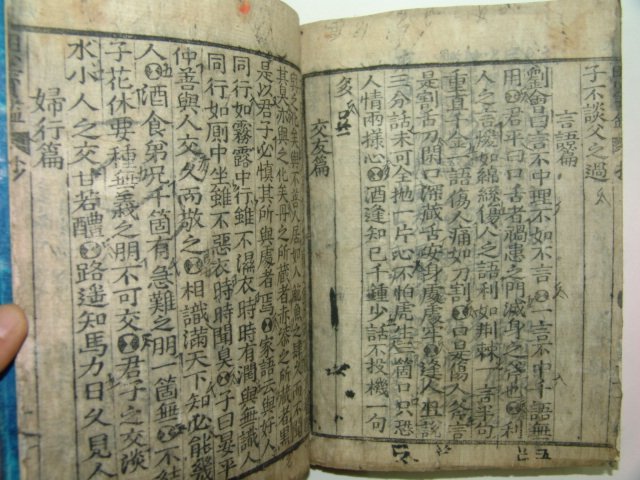 子不談父之過
言語篇
劉會曰言不中理不如不言○一言不中千語無
用○君平曰口舌者禍患之門滅身之斧也○利
人之言煖如綿絲傷人之語利如荊棘一言半句
重直千金一語傷人痛如刀割○口是傷人斧言
是割舌刀閉口深藏舌安身處處牢○逢人且說
三分話未可全抛一片心不怕虎生三箇口只恐
人情兩樣心○酒逢知己千鍾少話不投機一句
多
交友篇
不善人居如入鮑魚之肆久而不聞
其臭亦與之化矣丹之所藏者赤漆之所藏者黑
是以君子必慎其所與處者焉○家語云與好人
同行如霧露中行雖不濕衣時時有潤與無識人
同行如厠中坐雖不惡衣時時聞臭○子曰晏平
仲善與人交久而敬之○相識滿天下知心能幾
人○酒食弟兄千箇有急難之朋一箇無○不結
子花休要種無義之朋不可交○君子之交淡
水小人之交甘若醴○路遙知馬力日久見人
婦行篇
抄